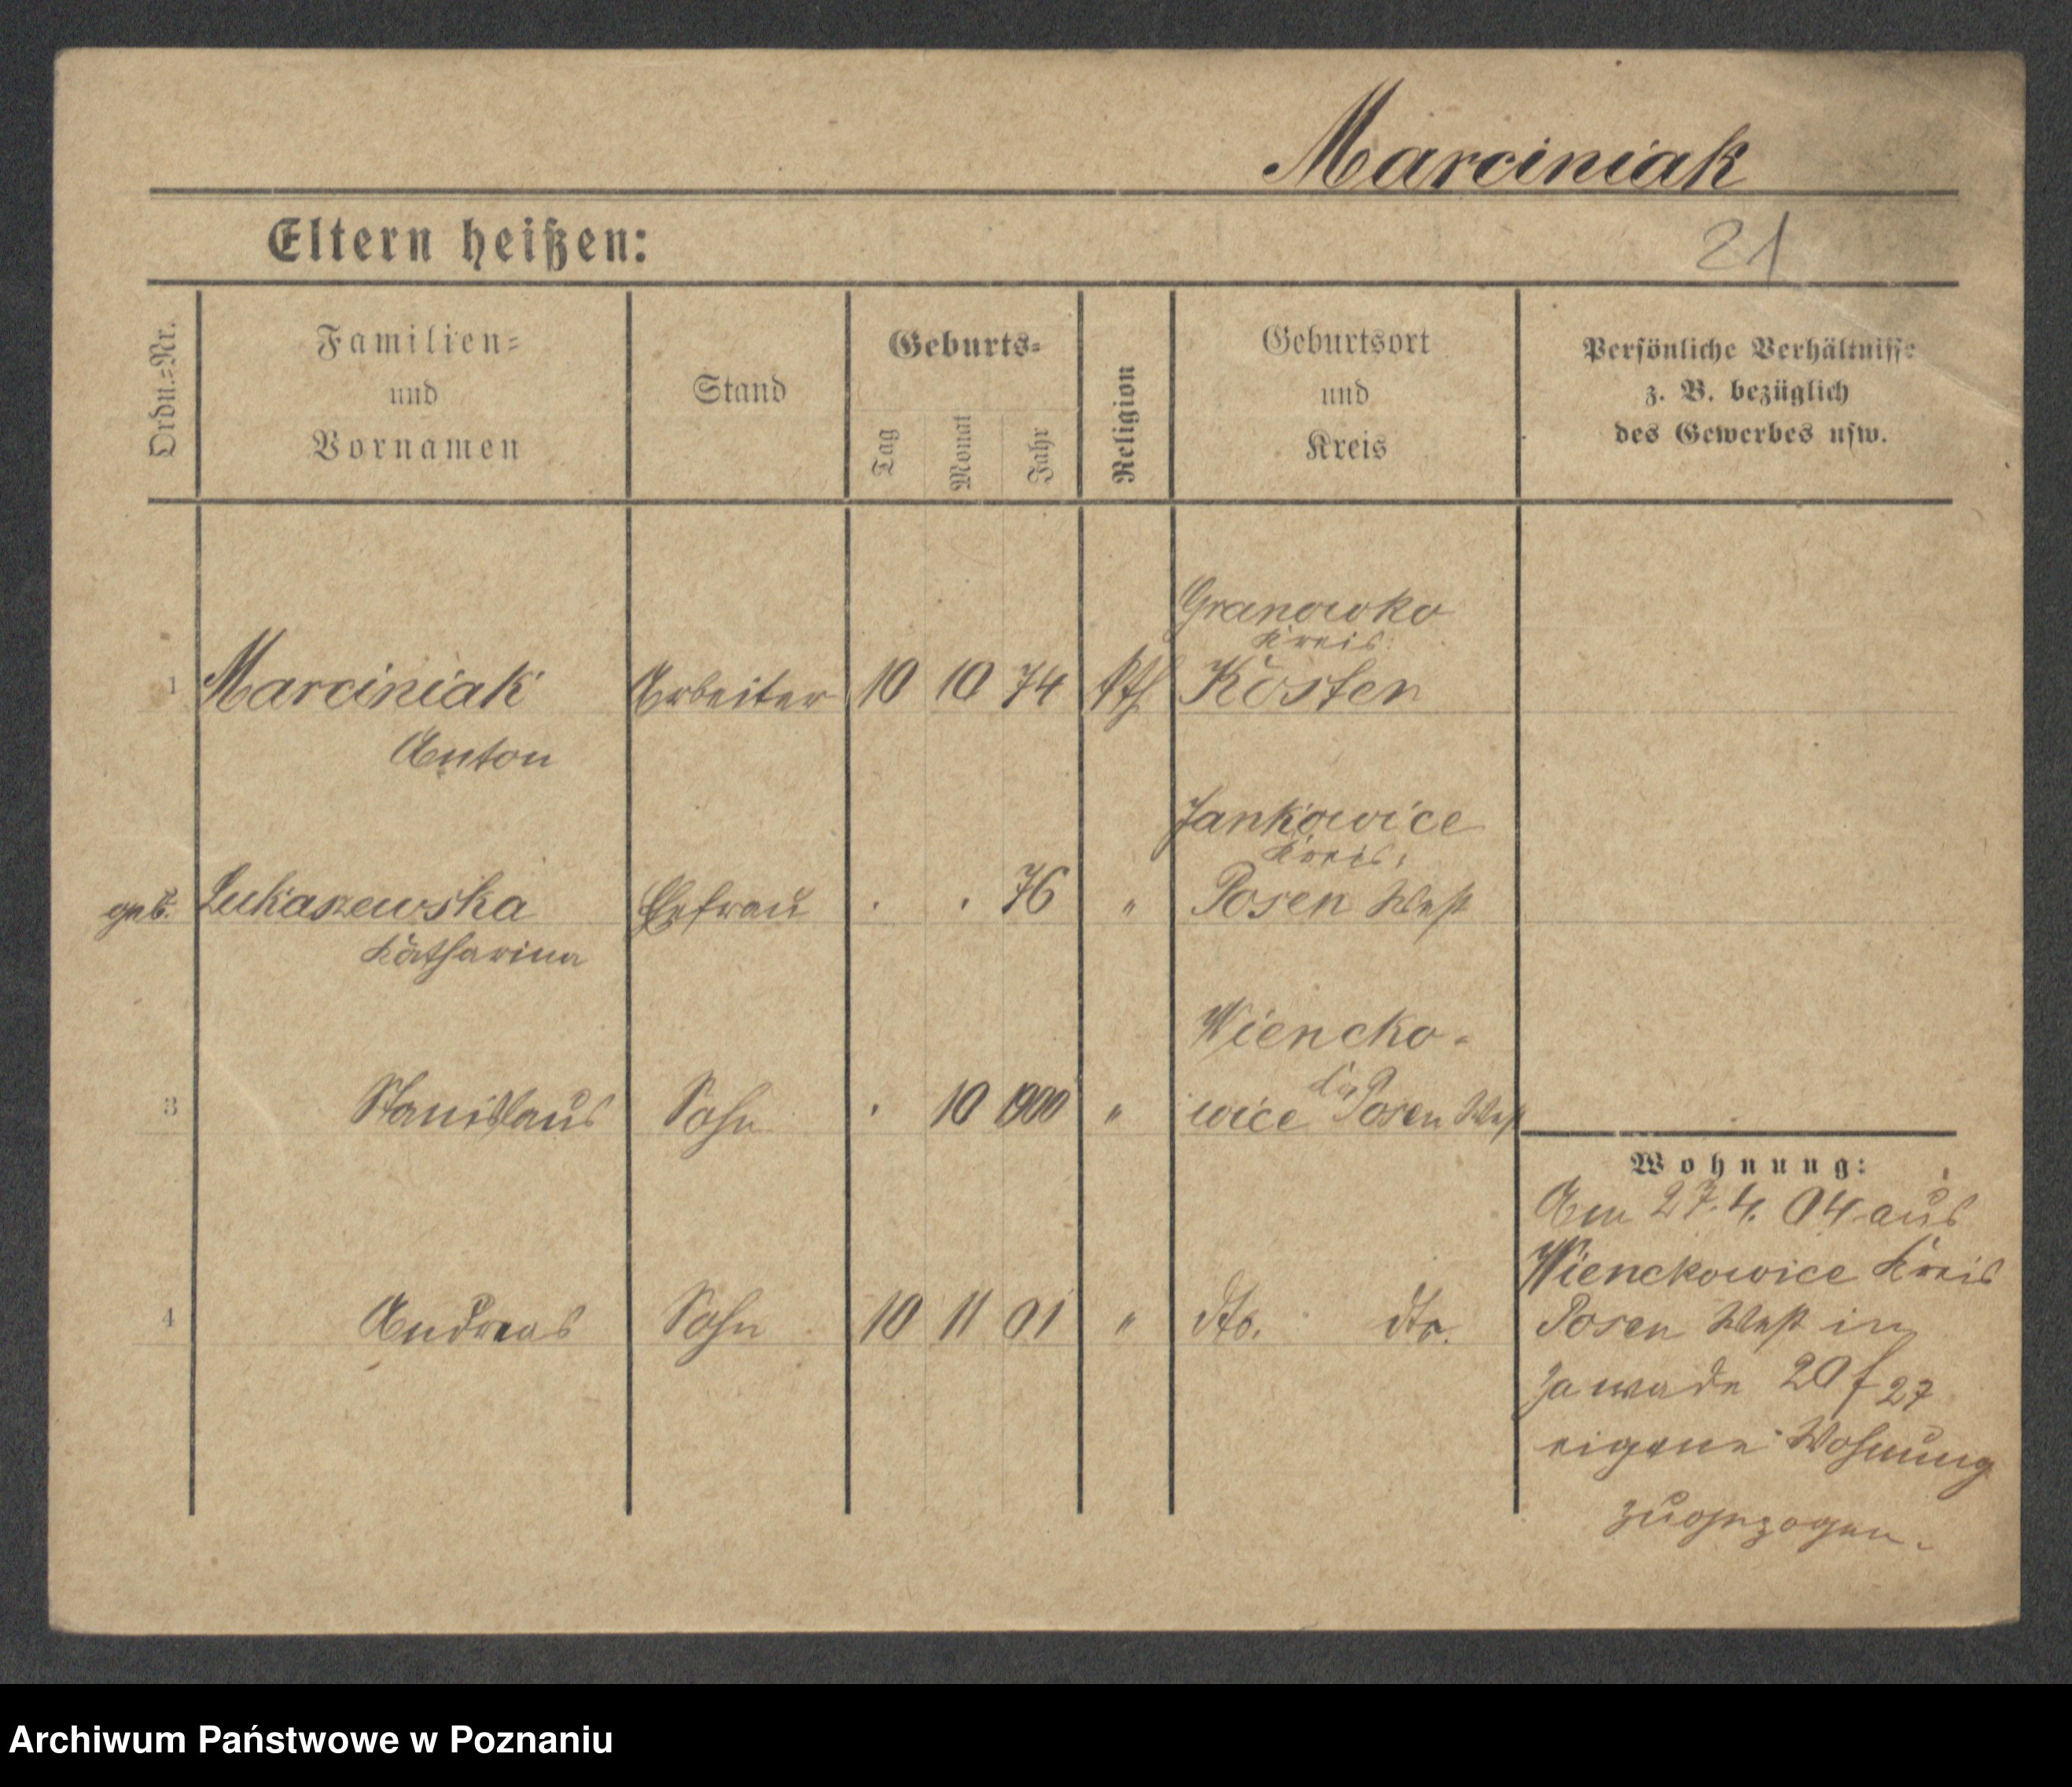 Marciniak
Eltern heißen:
21
Ordn.=Nr.
Familien=
und
Vornamen
Stand
Geburts=
Tag
Monat
Jahr
Religion
Geburtsort
und
Kreis
Persönliche Verhältnisse
z. B. bezüglich
des Gewerbes usw.
Granowko
Kreis:
1 Marciniak Arbeiter 10 10 74 kth. Kosten
Anton
Jankowice
Kreis:
geb. Lukaszewska Ehefrau . . 76 " Posen West
Katharina
Wiencko-
3 Stanislaus Sohn . 10 1900 " wice Posen West
Wohnung:
Am 27.4.04 aus
Wienckowice Kreis
4 Andreas Sohn 10 11 01 " dto. dto.
Posen West in
Zawade 20 f 27
eigene Wohnung
zugezogen.
Archiwum Państwowe w Poznaniu